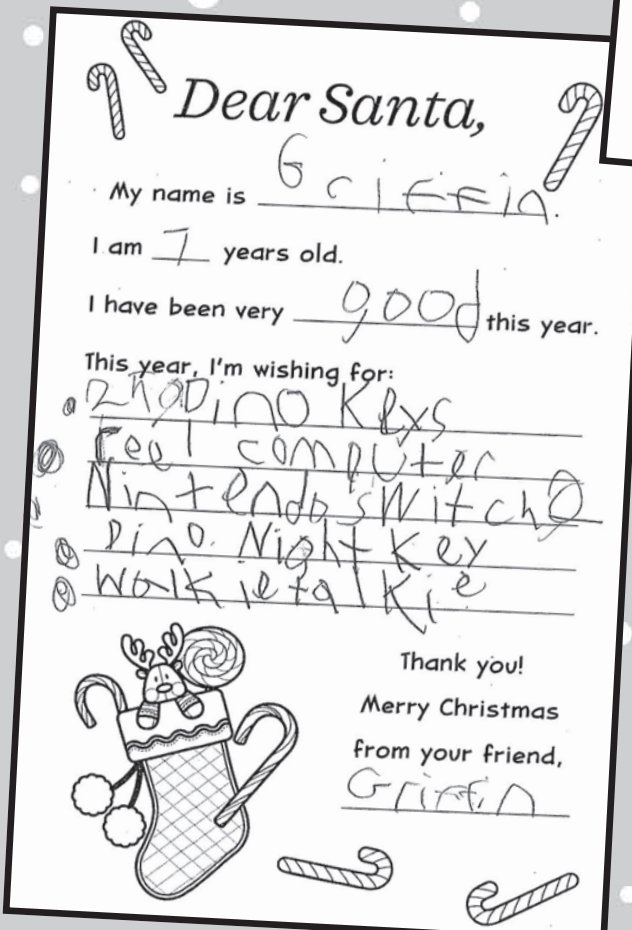 Dear Santa,
My name is Griffin.
I am 7 years old.
I have been very good this year.
This year, I'm wishing for:
Dino Keys
reel computer
Nintendo switch
Dino Night Key
Walkietalkie
Thank you!
Merry Christmas
from your friend,
Griffin